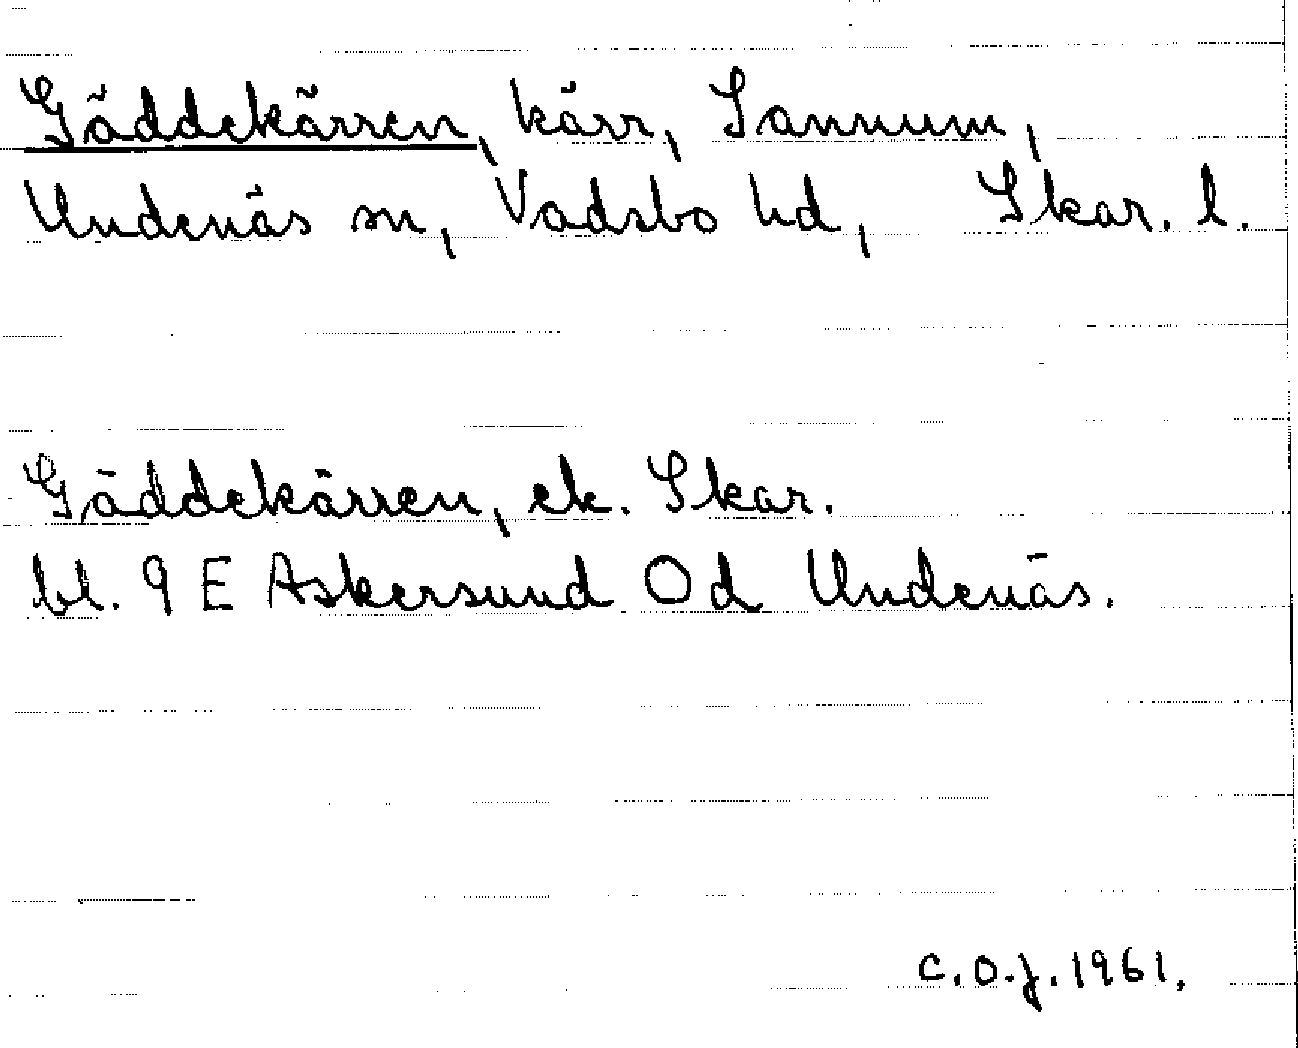 Gäddekärren, kärr, Sannum,
Undenäs sn, Vadsbo hd, Skar. l.
Gäddekärren, ek. Skar.
bl. 9 E Askersund 0d Undenäs.
C.O.J. 1961.